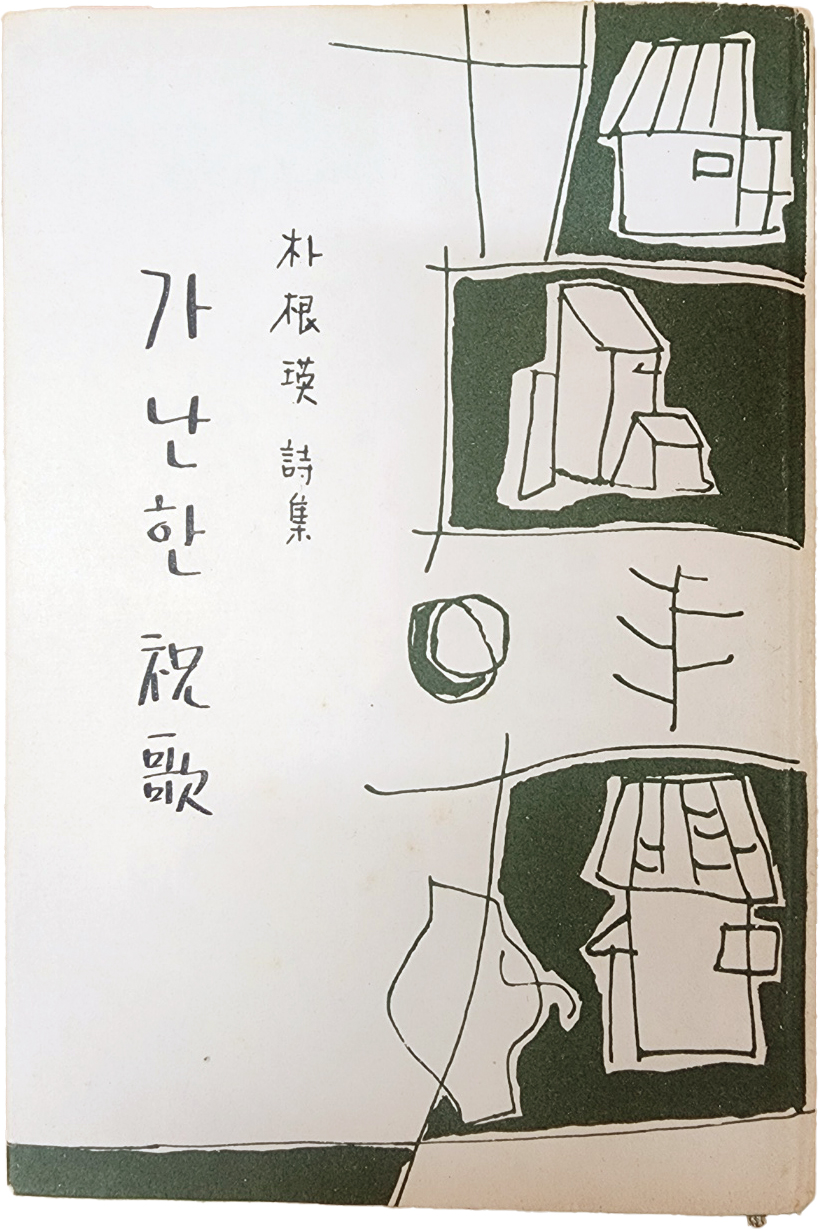 朴根瑛 詩集
가난한 祝歌